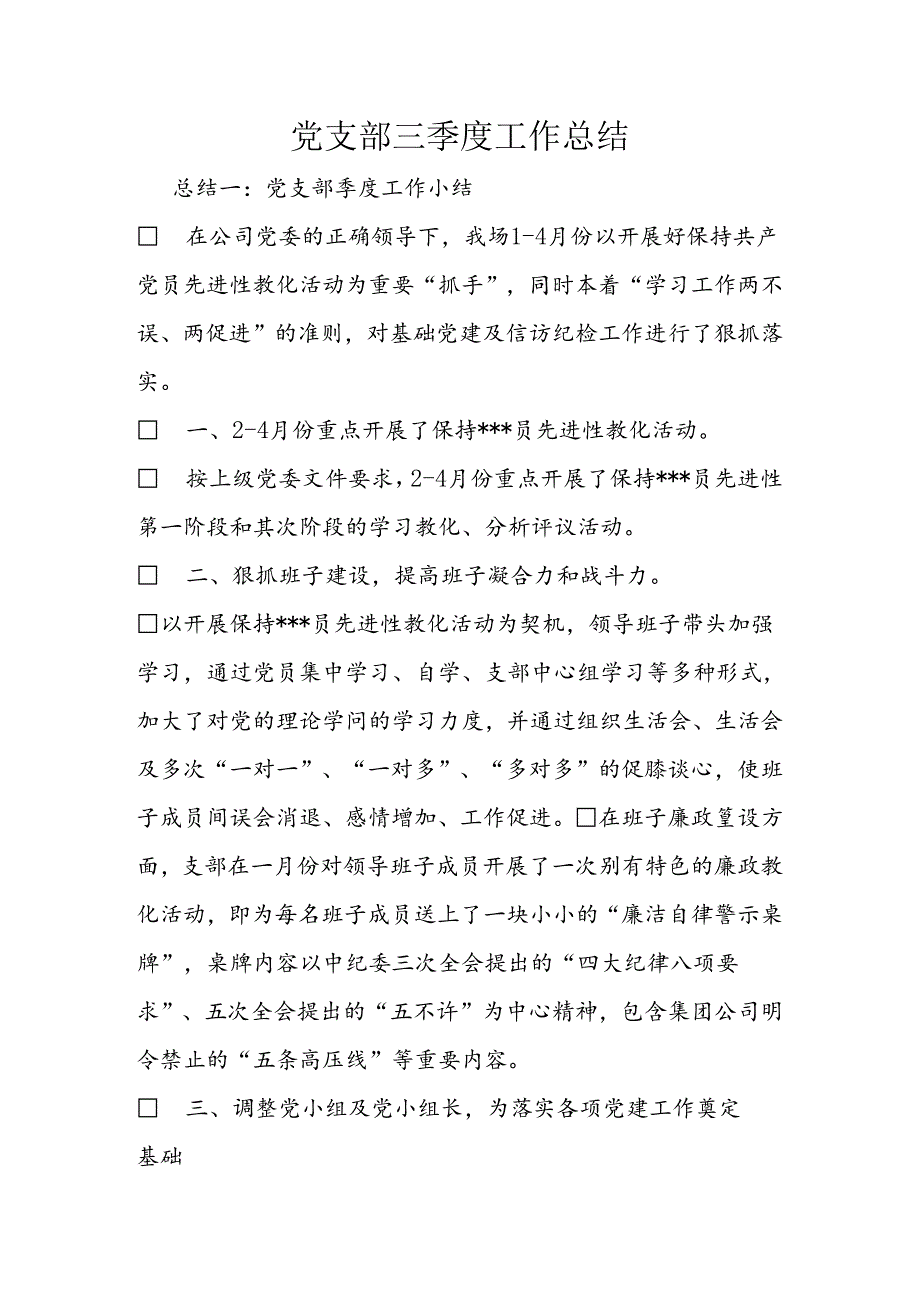 党支部三季度工作总结
总结一：党支部季度工作小结
□ 在公司党委的正确领导下，我场1-4月份以开展好保持共产
党员先进性教化活动为重要“抓手”，同时本着“学习工作两不
误、两促进”的准则，对基础党建及信访纪检工作进行了狠抓落
实。
□ 一、2-4月份重点开展了保持***员先进性教化活动。
□ 按上级党委文件要求，2-4月份重点开展了保持***员先进性
第一阶段和其次阶段的学习教化、分析评议活动。
□ 二、狠抓班子建设，提高班子凝合力和战斗力。
□以开展保持***员先进性教化活动为契机，领导班子带头加强
学习，通过党员集中学习、自学、支部中心组学习等多种形式，
加大了对党的理论学问的学习力度，并通过组织生活会、生活会
及多次“一对一”、“一对多”、“多对多”的促膝谈心，使班
子成员间误会消退、感情增加、工作促进。□在班子廉政篁设方
面，支部在一月份对领导班子成员开展了一次别有特色的廉政教
化活动，即为每名班子成员送上了一块小小的“廉洁自律警示桌
牌”，桌牌内容以中纪委三次全会提出的“四大纪律八项要
求”、五次全会提出的“五不许”为中心精神，包含集团公司明
令禁止的“五条高压线”等重要内容。
□ 三、调整党小组及党小组长，为落实各项党建工作奠定
基础